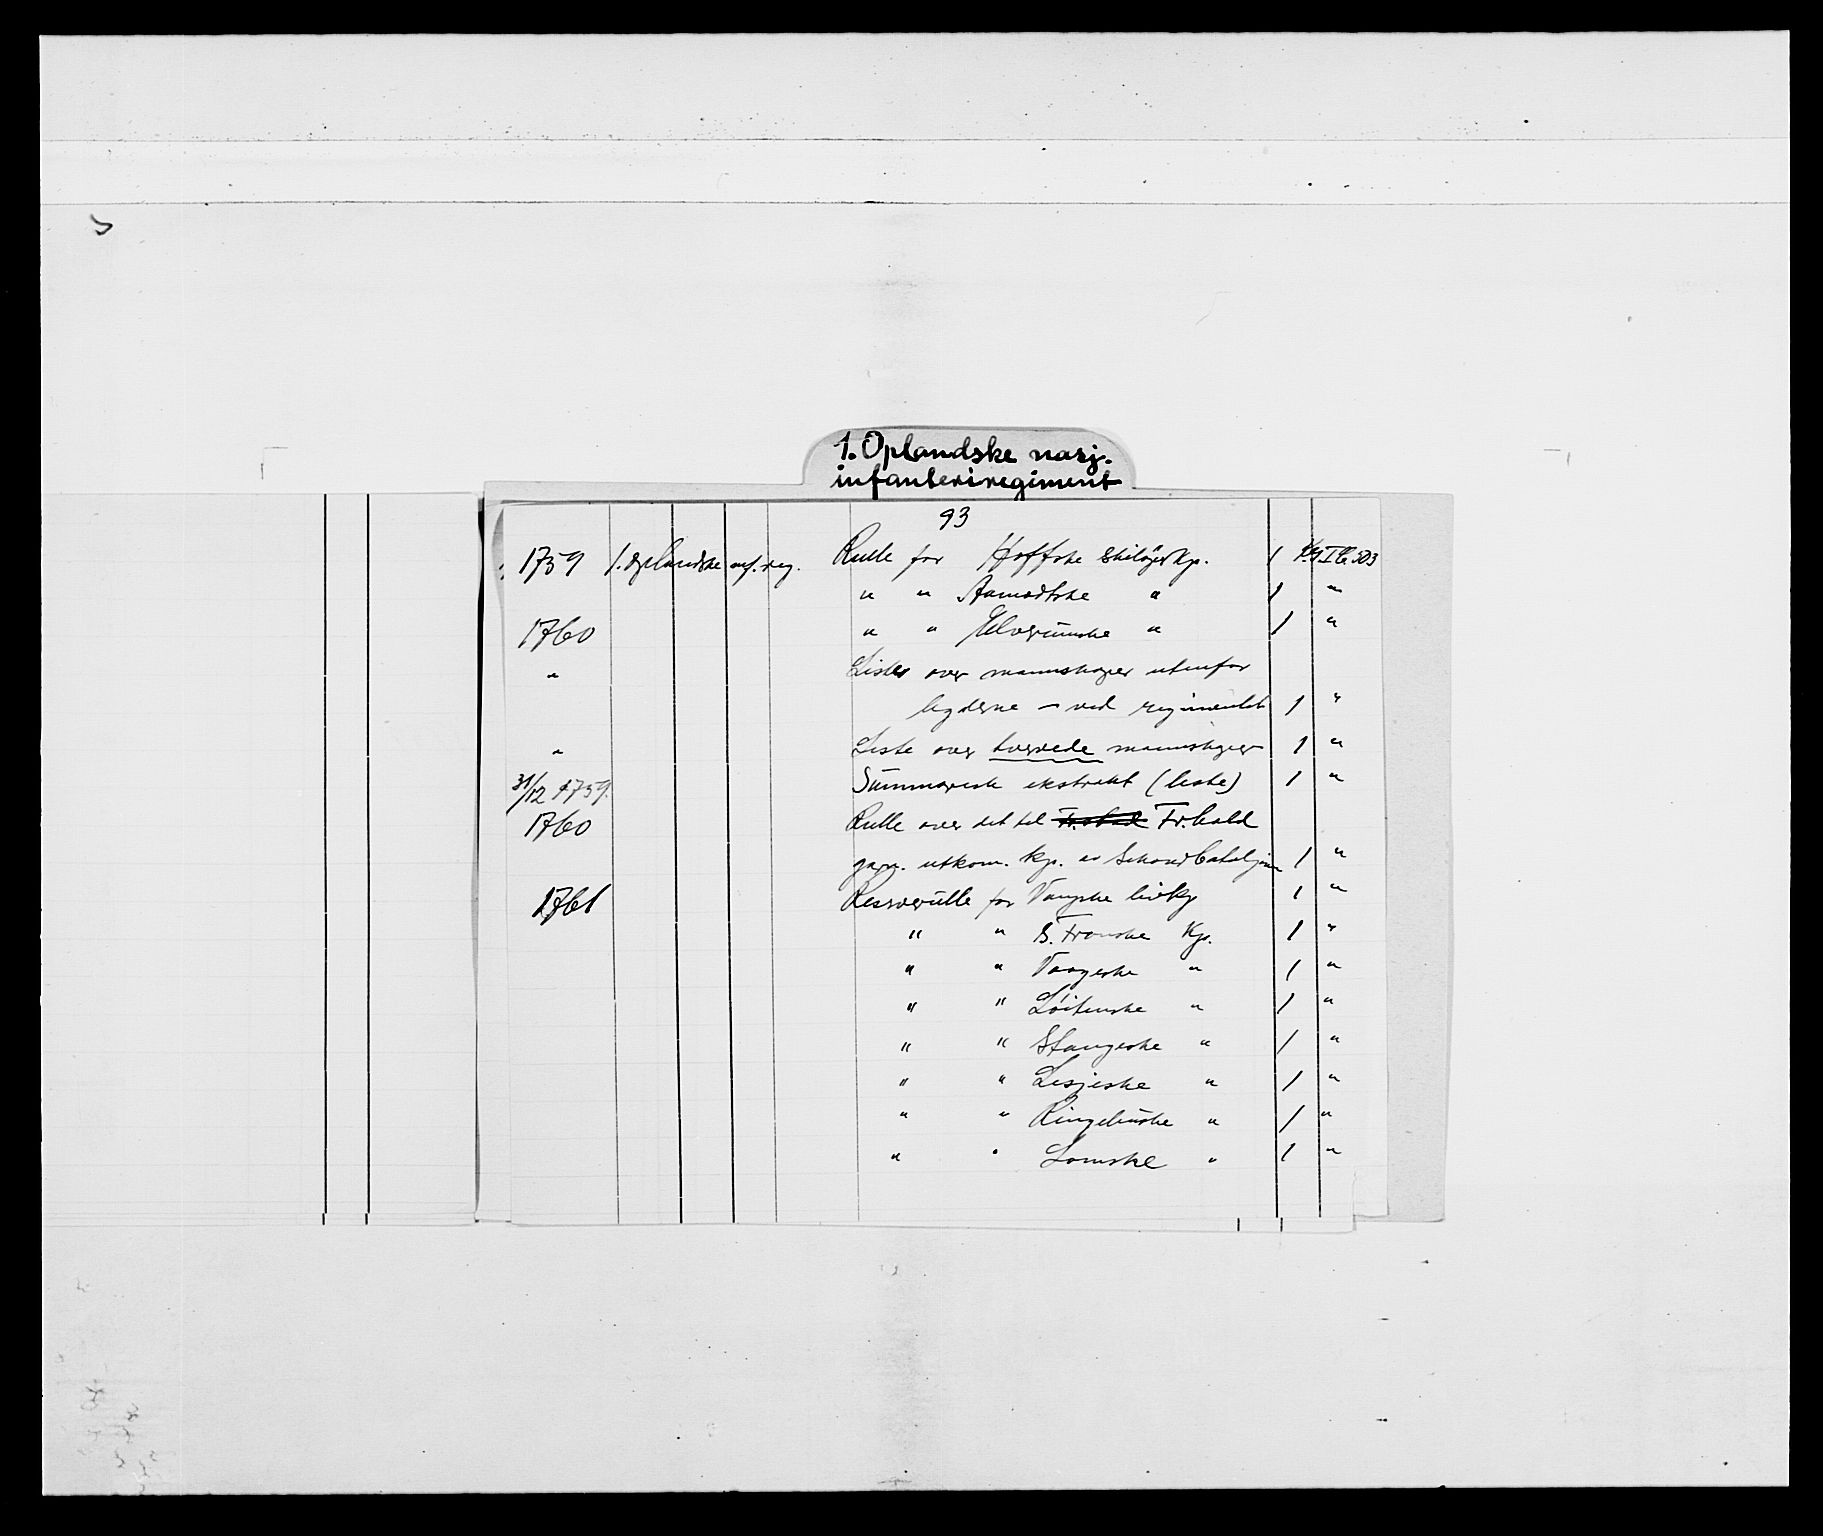 1. Oplandske nasj.
infanteriregiment
93
1759 1. Oplandske inf. reg. Rulle for Hoffske skiløperkp. 1
" " Aamodtske " 1 "
1760 " " Elverumske " 1 "
" Liste over mannskaper utenfor
legderne - ved regimentet 1 "
" Liste over hvervede mannskaper 1 "
31/12 1759. Summarisk ekstrakt (liste) 1 "
1760 Rulle over det til Fr.hald
garn. utkom. kp. av bataljon 1 "
1761 Reserverulle for Vangske livkp 1 "
" " S. Fronske Kp. 1 "
" " Vaageske " 1 "
" " Løitenske " 1 "
" " Stangeske " 1 "
" " Lesjeske " 1 "
" " Ringebuske " 1 "
" " Lomske " 1 "